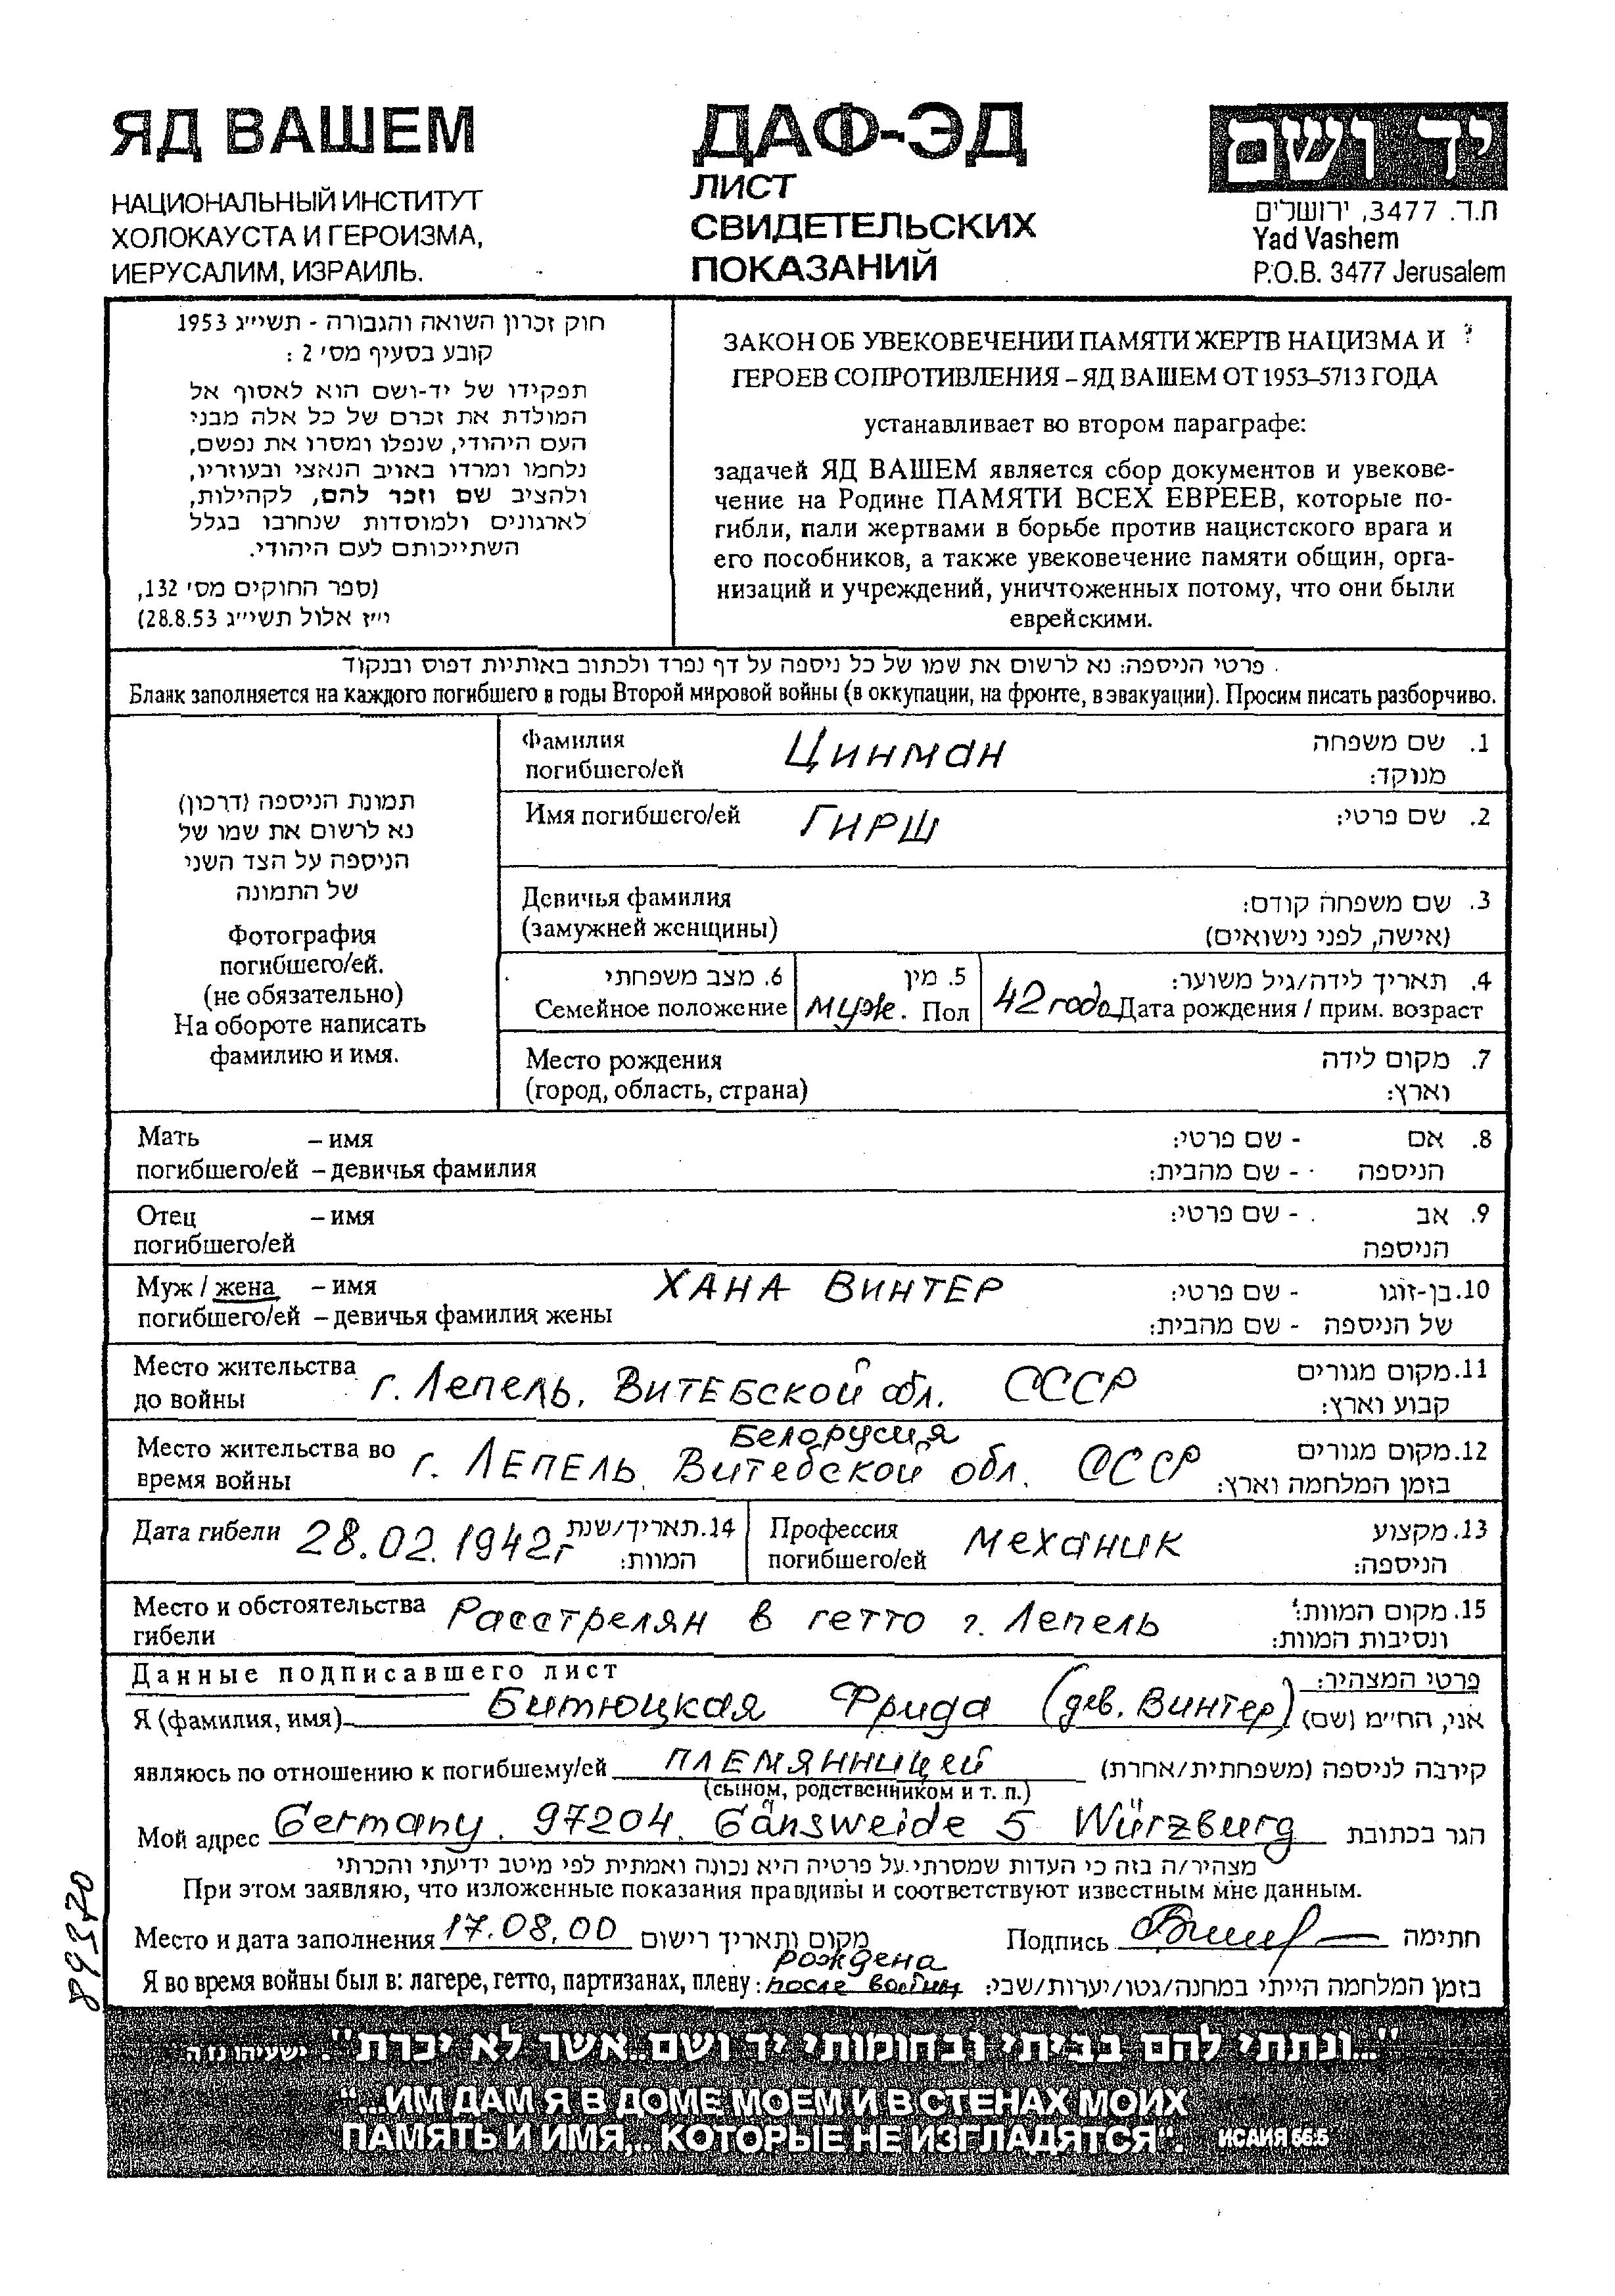 ЯД ВАШЕМ
НАЦИОНАЛЬНЫЙ ИНСТИТУТ
ХОЛОКАУСТА И ГЕРОИЗМА,
ИЕРУСАЛИМ, ИЗРАИЛЬ.
ДАФ-ЭД
ЛИСТ
СВИДЕТЕЛЬСКИХ
ПОКАЗАНИЙ
יד ושם
ת.ד. 3477, ירושלים
Yad Vashem
P.O.B. 3477 Jerusalem
חוק זכרון השואה והגבורה - תשי״ג 1953
קובע בסעיף מס׳ 2 :
תפקידו של יד-ושם הוא לאסוף אל
המולדת את זכרם של כל אלה מבני
העם היהודי, שנפלו ומסרו את נפשם,
נלחמו ומרדו באויב הנאצי ובעוזריו,
ולהציב שם וזכר להם, לקהילות,
לארגונים ולמוסדות שנחרבו בגלל
השתייכותם לעם היהודי.
(ספר החוקים מס׳ 132,
י״ז אלול תשי״ג 28.8.53)
ЗАКОН ОБ УВЕКОВЕЧЕНИИ ПАМЯТИ ЖЕРТВ НАЦИЗМА И
ГЕРОЕВ СОПРОТИВЛЕНИЯ – ЯД ВАШЕМ ОТ 1953–5713 ГОДА
устанавливает во втором параграфе:
задачей ЯД ВАШЕМ является сбор документов и увекове-
чение на Родине ПАМЯТИ ВСЕХ ЕВРЕЕВ, которые по-
гибли, пали жертвами в борьбе против нацистского врага и
его пособников, а также увековечение памяти общин, орга-
низаций и учреждений, уничтоженных потому, что они были
еврейскими.
פרטי הניספה: נא לרשום את שמו של כל ניספה על דף נפרד ולכתוב באותיות דפוס ובנקוד
Бланк заполняется на каждого погибшего в годы Второй мировой войны (в оккупации, на фронте, в эвакуации). Просим писать разборчиво.
תמונת הניספה (דרכון)
נא לרשום את שמו של
הניספה על הצד השני
של התמונה
Фотография
погибшего/ей.
(не обязательно)
На обороте написать
фамилию и имя.
Фамилия Цинман 1. שם משפחה
погибшего/ей מנוקד:
Имя погибшего/ей ГИРШ 2. שם פרטי:
Девичья фамилия 3. שם משפחה קודם:
(замужней женщины) (אישה, לפני נישואים)
6. מצב משפחתי 5. מין 4. תאריך לידה/גיל משוער:
Семейное положение муж. Пол 42 года Дата рождения / прим. возраст
Место рождения 7. מקום לידה
(город, область, страна) וארץ:
Мать – имя 8. אם - שם פרטי:
погибшего/ей – девичья фамилия הניספה - שם מהבית:
Отец – имя 9. אב - שם פרטי:
погибшего/ей הניספה
Муж / жена – имя ХАНА ВИНТЕР 10. בן-זוגו - שם פרטי:
погибшего/ей – девичья фамилия жены של הניספה - שם מהבית:
Место жительства г. Лепель, ВИТЕБСКОЙ обл. СССР 11. מקום מגורים
до войны קבוע וארץ:
Белорусия
Место жительства во г. ЛЕПЕЛЬ, Витебской обл. СССР 12. מקום מגורים
время войны בזמן המלחמה וארץ:
Дата гибели 28.02.1942г 14. תאריך/שנת המוות:
Профессия механик 13. מקצוע
погибшего/ей הניספה:
Место и обстоятельства Расстрелян в гетто г. Лепель 15. מקום המוות:
гибели ונסיבות המוות:
Данные подписавшего лист פרטי המצהיר:
Я (фамилия, имя) Битюцкая Фрида (дев. Винтер) אני, החי״מ (שם)
являюсь по отношению к погибшему/ей ПЛЕМЯННИЦЕЙ קירבה לניספה (משפחתית/אחרת)
(сыном, родственником и т. п.)
Мой адрес Germany, 97204, Gänsweide 5 Würzburg הגר בכתובת
מצהיר/ה בזה כי העדות שמסרתי על פרטיה היא נכונה ואמתית לפי מיטב ידיעתי והכרתי
При этом заявляю, что изложенные показания правдивы и соответствуют известным мне данным.
Место и дата заполнения 17.08.00 מקום ותאריך רישום Подпись חתימה
рождена
Я во время войны был в: лагере, гетто, партизанах, плену: после войны בזמן המלחמה הייתי במחנה/גטו/יערות/שבי:
89920
"...ונתתי להם בביתי ובחומותי יד ושם..אשר לא יכרת". ישעיהו נו ה
“...ИМ ДАМ Я В ДОМЕ МОЕМ И В СТЕНАХ МОИХ
ПАМЯТЬ И ИМЯ... КОТОРЫЕ НЕ ИЗГЛАДЯТСЯ“. ИСАИЯ 56:5